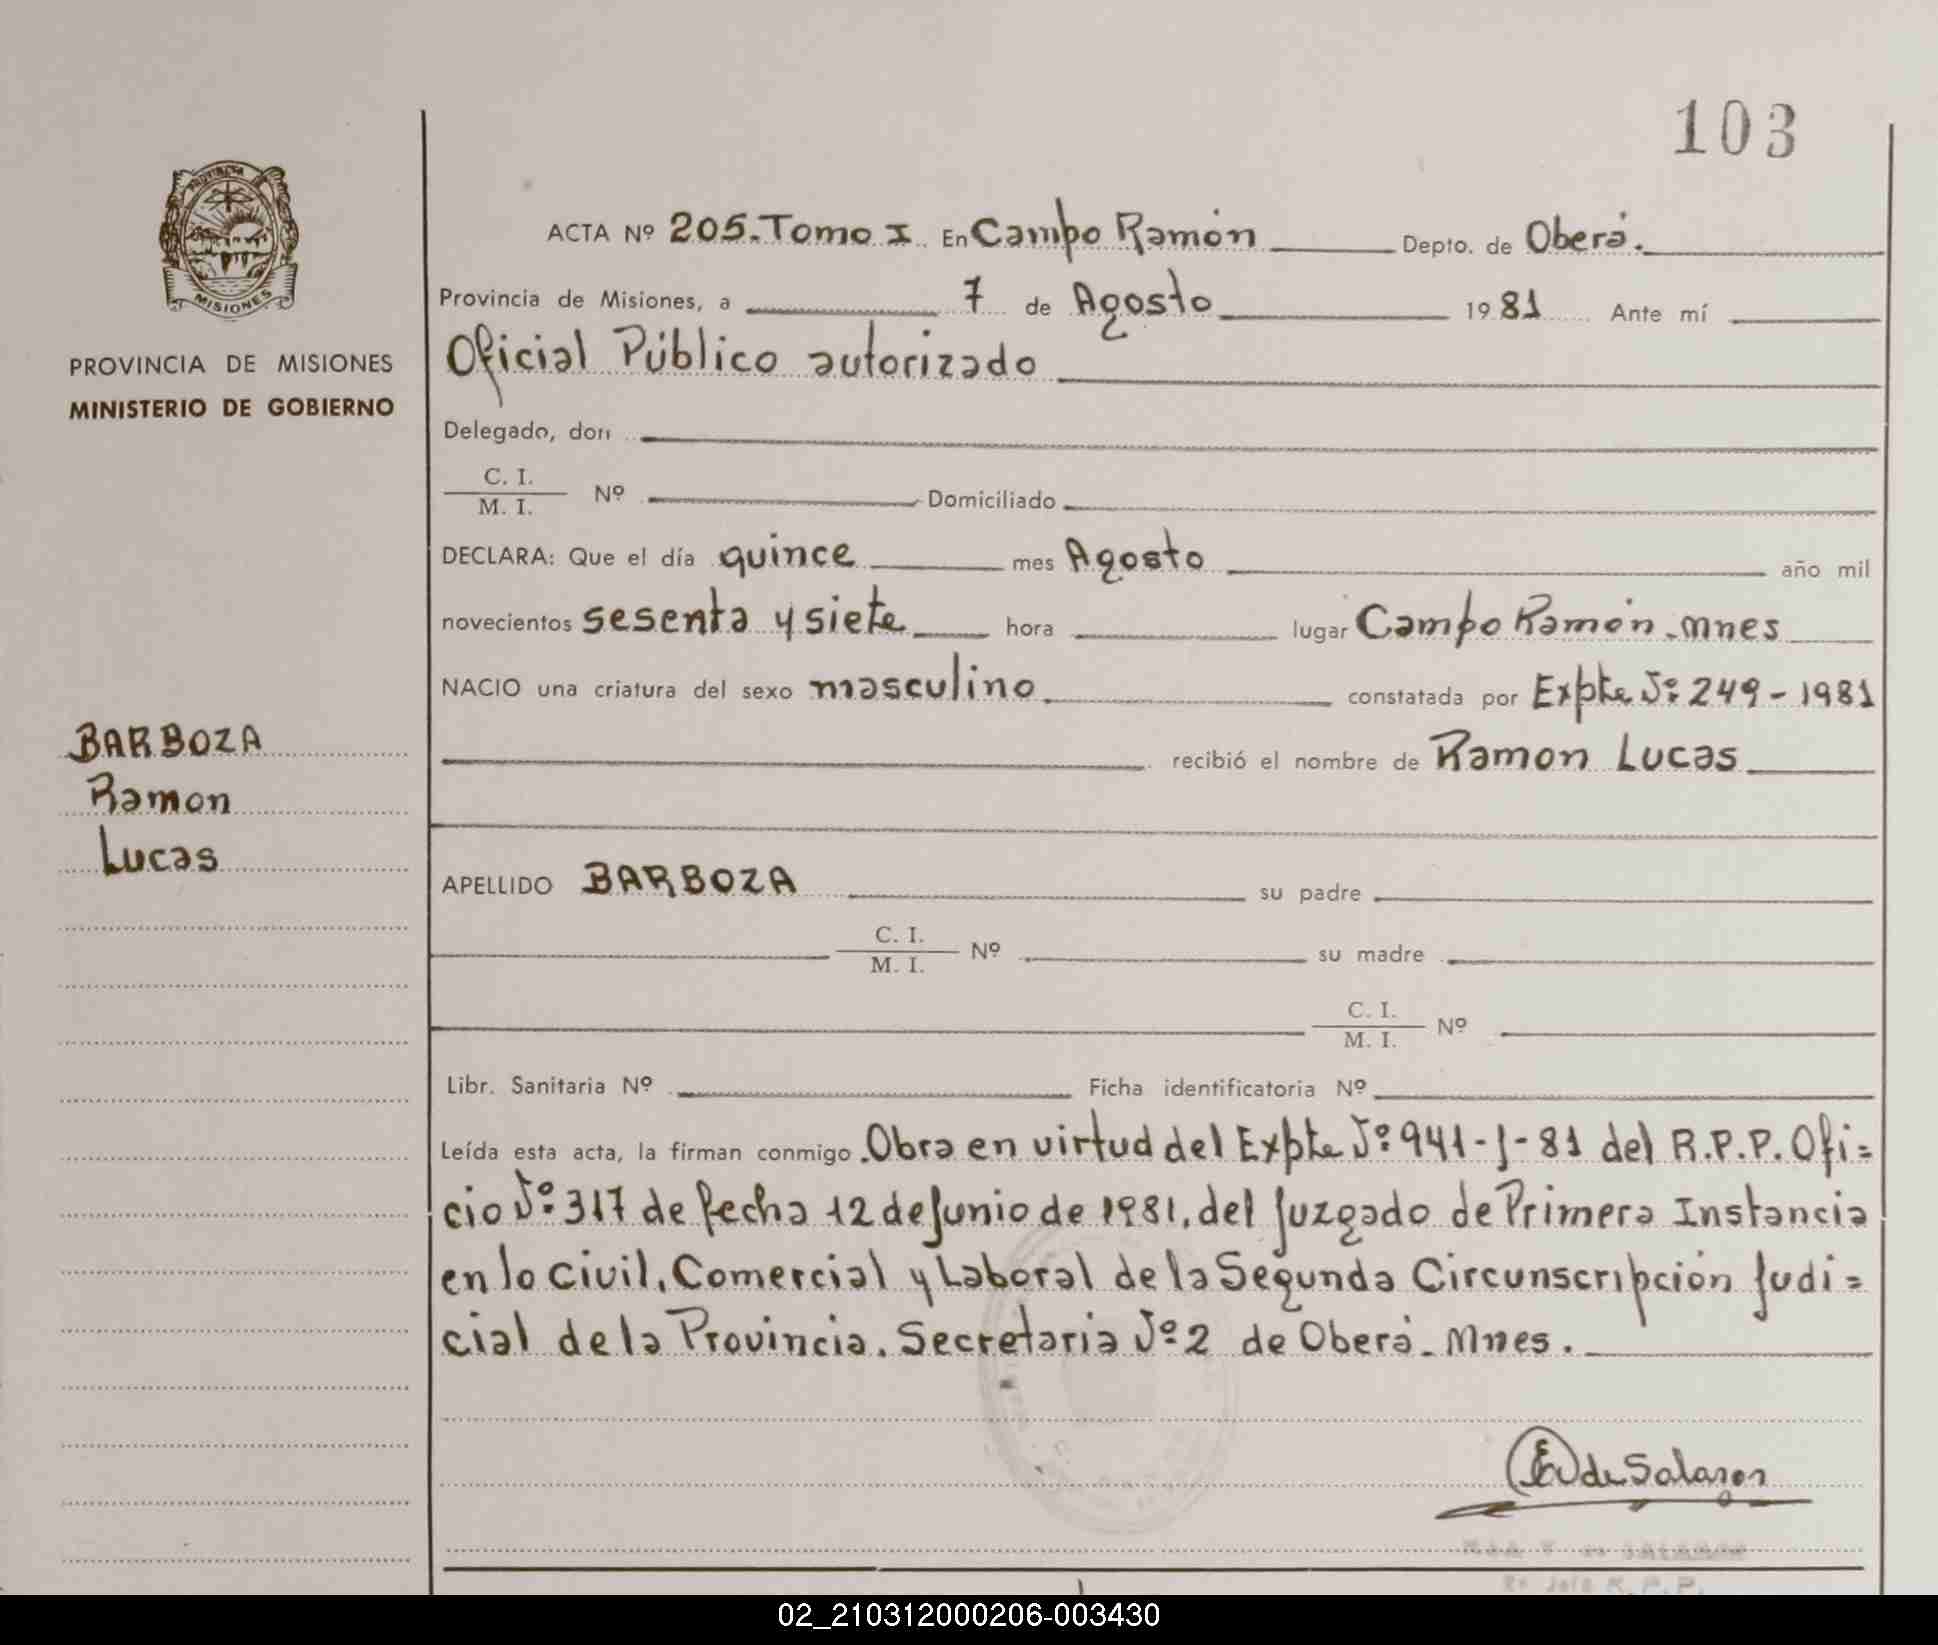 103
PROVINCIA
MISIONES
PROVINCIA DE MISIONES
MINISTERIO DE GOBIERNO
BARBOZA
Ramon
Lucas
ACTA Nº 205. Tomo I. En Campo Ramón Depto. de Oberá.
Provincia de Misiones, a 7 de Agosto 1981 Ante mí
Oficial Público autorizado
Delegado, don
C. I.
M. I. Nº Domiciliado
DECLARA: Que el día quince mes Agosto año mil
novecientos sesenta y siete hora lugar Campo Ramón. Mnes
NACIO una criatura del sexo masculino constatada por Expte Nº: 249-1981
recibió el nombre de Ramon Lucas
APELLIDO BARBOZA su padre
C. I.
M. I. Nº su madre
C. I.
M. I. Nº
Libr. Sanitaria Nº Ficha identificatoria Nº
Leída esta acta, la firman conmigo. Obra en virtud del Expte Nº: 941-J-81 del R.P.P. Ofi=
cio Nº: 317 de fecha 12 de Junio de 1981, del Juzgado de Primera Instancia
en lo Civil, Comercial y Laboral de la Segunda Circunscripción Judi=
cial de la Provincia. Secretaria Nº 2 de Oberá. Mnes.
de Salazar
R. P. P.
02_210312000206-003430